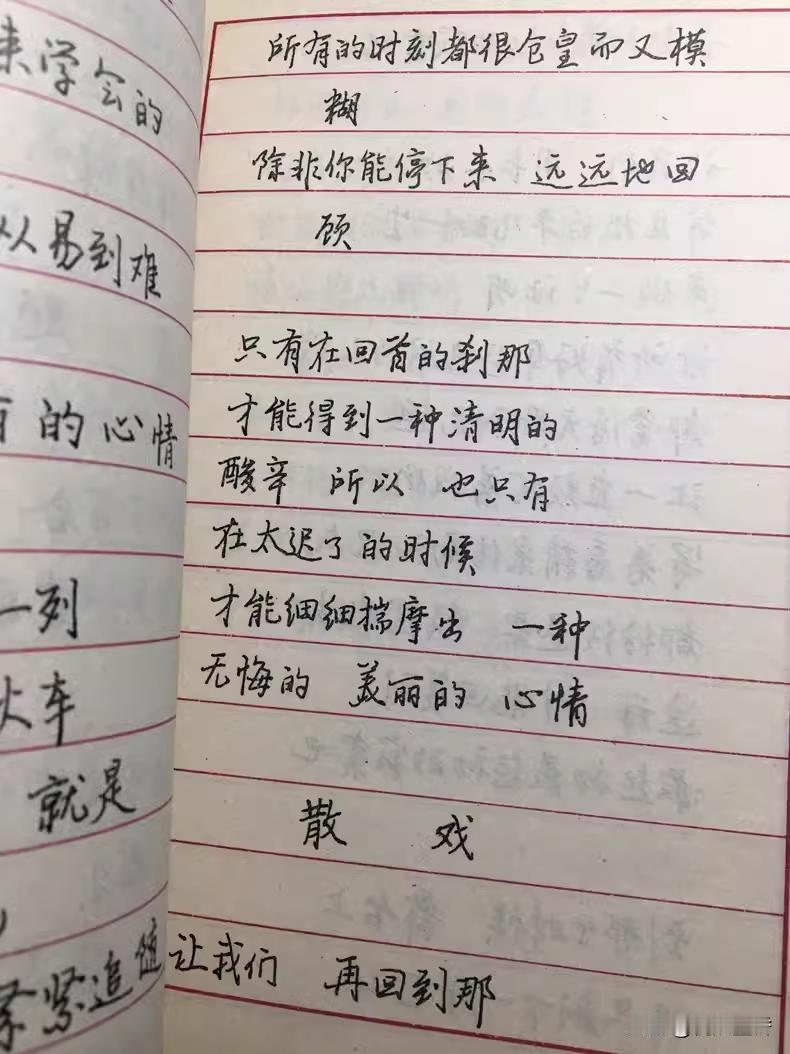 来学会的
从易到难
有的心情
一列
火车
就是
紧紧追随
所有的时刻都很仓皇而又模
糊
除非你能停下来 远远地回
顾
只有在回首的刹那
才能得到一种清明的
酸辛 所以 也只有
在太迟了的时候
才能细细揣摩出 一种
无悔的 美丽的 心情
散 戏
让我们 再回到那